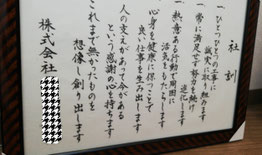 社訓
一 ひとつひとつの工事に
誠実に取り組みます
一 常に満足せず努力を続け
進化します
一 熱意ある行動で周囲に
活気をもたらします
心身を健康に保つことで
良い仕事を生み出します
人の支えがあって今がある
という感謝の心を持ちます
これまで無かったものを
想像し創り出します
株式会社